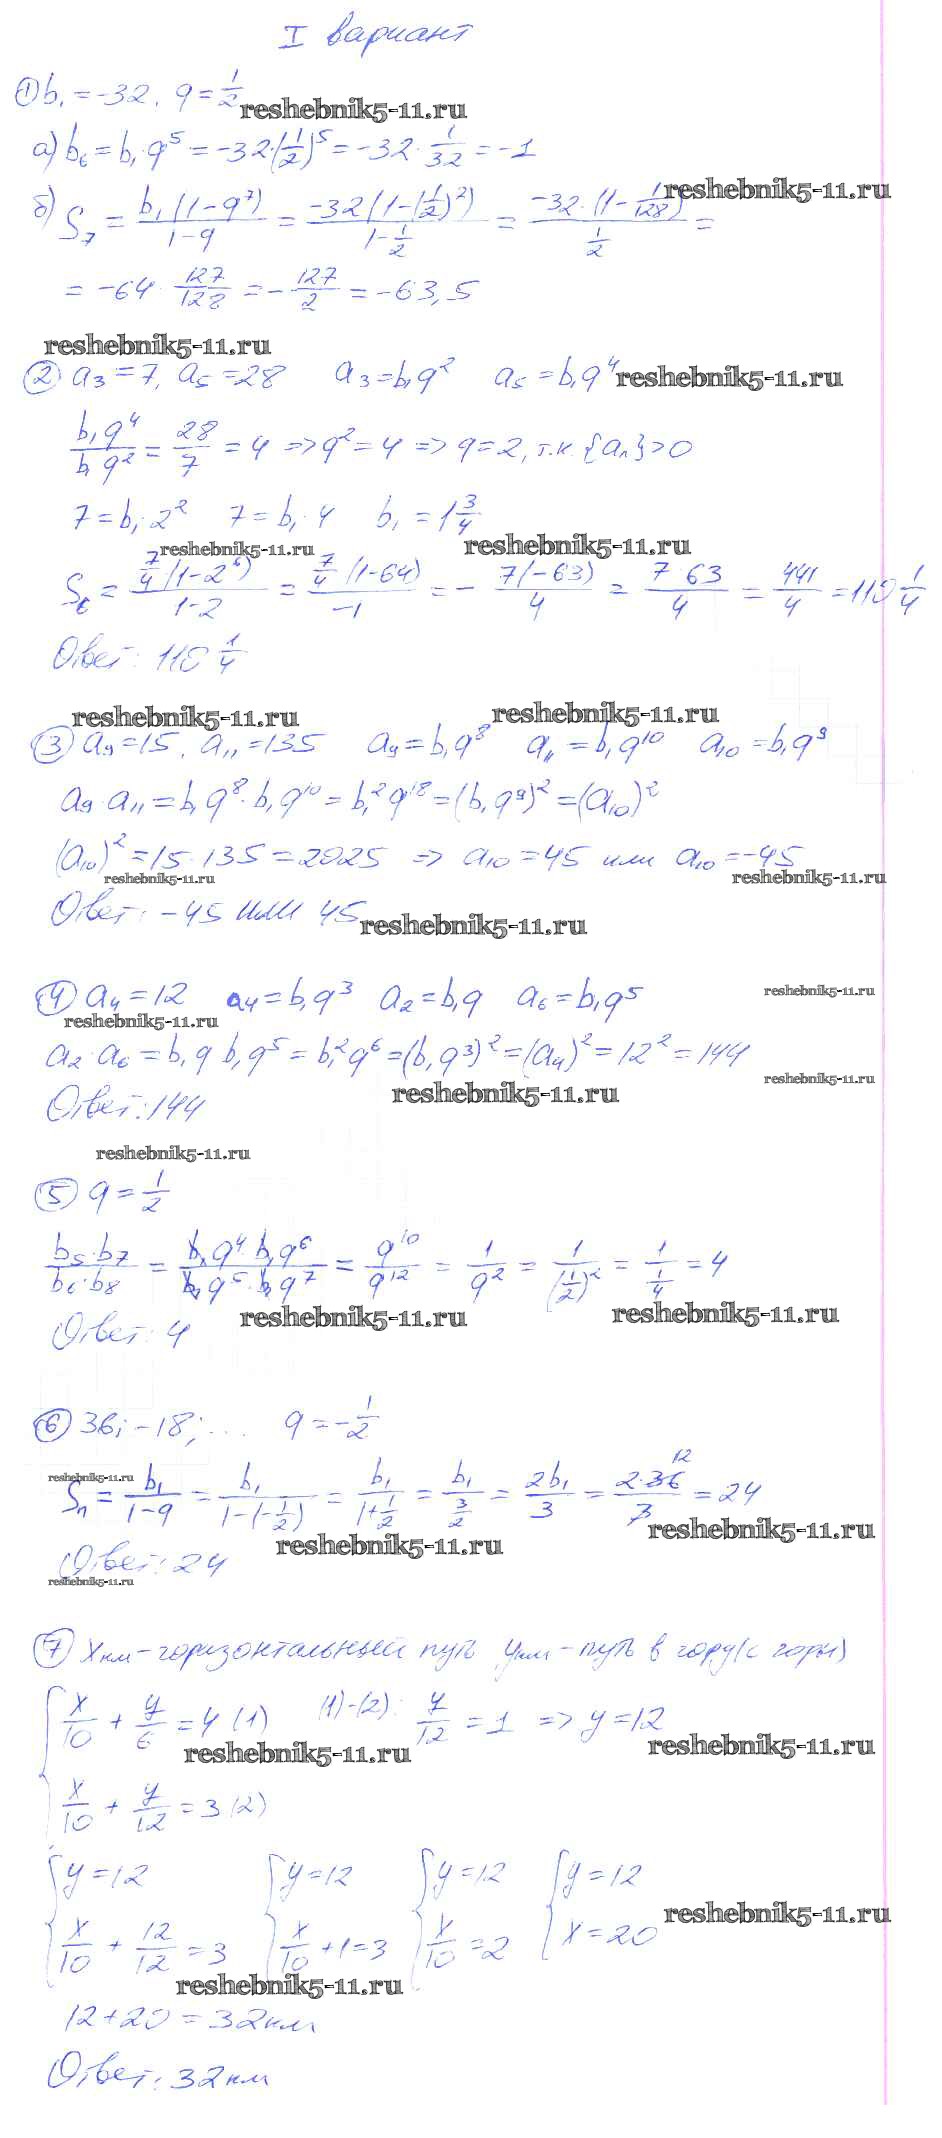 I вариант
① b₁ = -32, q = 1/2
reshebnik5-11.ru
а) b₆ = b₁ · q⁵ = -32 · (1/2)⁵ = -32 · 1/32 = -1
reshebnik5-11.ru
б) S₇ = b₁(1-q⁷)/(1-q) = -32(1-(1/2)²)/(1-1/2) = -32·(1-1/128)/(1/2) =
= -64 · 127/128 = -127/2 = -63,5
reshebnik5-11.ru
② a₃ = 7, a₅ = 28 a₃ = b₁q² a₅ = b₁q⁴
reshebnik5-11.ru
b₁q⁴/b₁q² = 28/7 = 4 => q² = 4 => q = 2, т.к. {aₙ} > 0
7 = b₁ · 2² 7 = b₁ · 4 b₁ = 1 3/4
reshebnik5-11.ru reshebnik5-11.ru
S₆ = 7/4 (1-2⁶)/(1-2) = 7/4 (1-64)/-1 = - 7(-63)/4 = 7·63/4 = 441/4 = 110 1/4
Ответ: 110 1/4
reshebnik5-11.ru reshebnik5-11.ru
③ a₉ = 15, a₁₁ = 135 a₉ = b₁q⁸ a₁₁ = b₁q¹⁰ a₁₀ = b₁q⁹
a₉ · a₁₁ = b₁q⁸ · b₁q¹⁰ = b₁²q¹⁸ = (b₁q⁹)² = (a₁₀)²
(a₁₀)² = 15 · 135 = 2025 => a₁₀ = 45 или a₁₀ = -45
reshebnik5-11.ru reshebnik5-11.ru
Ответ: -45 или 45
reshebnik5-11.ru
④ a₄ = 12 a₄ = b₁q³ a₂ = b₁q a₆ = b₁q⁵
reshebnik5-11.ru
reshebnik5-11.ru
a₂ · a₆ = b₁q b₁q⁵ = b₁²q⁶ = (b₁q³)² = (a₄)² = 12² = 144
reshebnik5-11.ru
reshebnik5-11.ru
Ответ: 144
reshebnik5-11.ru
⑤ q = 1/2
b₅·b₇/b₆·b₈ = b₁q⁴ b₁q⁶/b₁q⁵·b₁q⁷ = q¹⁰/q¹² = 1/q² = 1/(1/2)² = 1/(1/4) = 4
reshebnik5-11.ru reshebnik5-11.ru
Ответ: 4
⑥ 36; -18; ... q = -1/2
reshebnik5-11.ru
Sₙ = b₁/(1-q) = b₁/(1-(-1/2)) = b₁/(1+1/2) = b₁/(3/2) = 2b₁/3 = 2·36/3 = 24
12
reshebnik5-11.ru
reshebnik5-11.ru
Ответ: 24
reshebnik5-11.ru
⑦ x км - горизонтальный путь y км - путь в гору (с горы)
{ x/10 + y/6 = 4 (1) (1)-(2): y/12 = 1 => y = 12
reshebnik5-11.ru reshebnik5-11.ru
x/10 + y/12 = 3 (2)
{ y = 12 { y = 12 { y = 12 { y = 12
x/10 + 12/12 = 3 x/10 + 1 = 3 x/10 = 2 x = 20
reshebnik5-11.ru
reshebnik5-11.ru
12 + 20 = 32 км
Ответ: 32 км